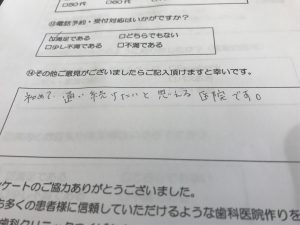 □50代 □60代
⑬電話予約・受付対応はいかがですか？
☑満足である □どちらでもない
□少し不満である □不満である
⑭その他ご意見がございましたらご記入頂けますと幸いです。
初めて 通い続けたいと思える 医院です。
ンケートのご協力ありがとうございました。
も多くの患者様に信頼していただけるような歯科医院作りを